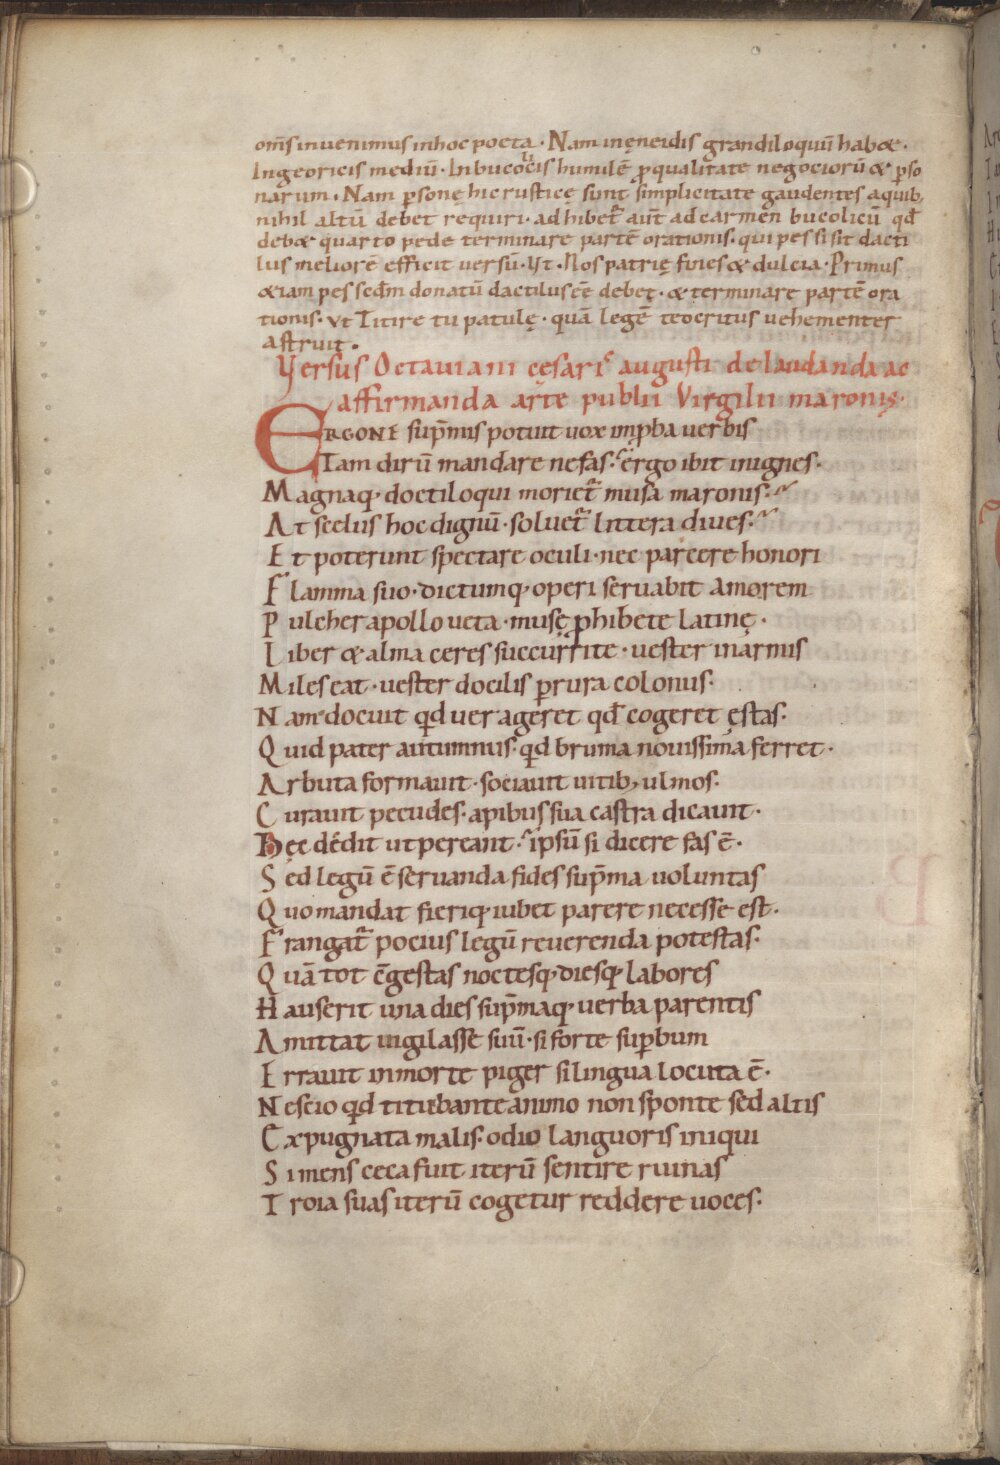 om̅s inuenimus in hoc poeta · Nam in ęneidis grandiloquū habet ·
In georicis mediū · In bucocis humilē ꝓ qualitate negociorū & ꝑso
narum · Nam ꝑsonę hic rusticę sunt simplicitate gaudentes a quib;
nihil altū debet requiri · adhibet᷑ aut̄ ad carmen bucolicū qđ
deb& quarto pede terminare partē orationis · qui pes si sit dacti
lus meliorē efficit uersū · Vt · Nos patrię fines & dulcia · Primus
&iam pes sed̄m donatū dactilus eē debet · & terminare partē ora
tionis · vt Titire tu patulę · quā legē teocritus uehementer
astruit ·
Versus Octauiani cęsaris augusti de laudanda ac
affirmanda arte publii Virgilii maronis ·
ERGONE sup̄mis potuit uox imꝓba uerbis
Tam dirū mandare nefas · ergo ibit in ignes ·
Magnaq; doctiloqui moriet᷑ musa maronis ·
At scelus hoc dignū · soluet᷑ littera diues ·
Et poterunt spectare oculi · nec parcere honori
Flamma suo · dictumq; operi seruabit amorem
Pulcher apollo ueta · musę ꝓhibete latinę ·
Liber & alma ceres succurrite · uester in armis
Miles eat · uester docilis ꝑ rura colonus ·
Nam docuit qđ uer ageret qđ cogeret ęstas ·
Quid pater autumnus · qđ bruma nouissima ferret ·
Arbuta formauit · sociauit uitib; ulmos ·
Curauit pecudes · apibus sua castra dicauit ·
Hęc dedit ut pereant · ipsū si dicere fas ē ·
Sed legū ē seruanda fides sup̄ma uoluntas
Quo mandat fieriq; iubet parere necesse est ·
Frangat᷑ pocius legū reuerenda potestas ·
Quā tot c̄gestas noctesq; diesq; labores
Hauserit una dies sup̄maq; uerba parentis
Amittat uigilasse suū · si forte suꝑbum
Errauit in morte piger si lingua locuta ē ·
Nescio qđ titubante animo non sponte sed altis
Expugnata malis · odio languoris iniqui
Si mens ceca fuit iterū sentire ruinas
Troia suas iterū cogetur reddere uoces ·